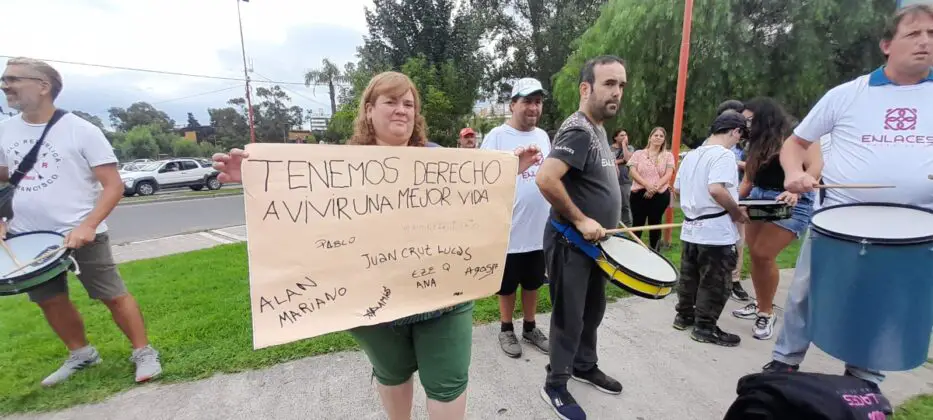 TENEMOS DERECHO
A VIVIR UNA MEJOR VIDA
PABLO
JUAN CRUZ LUCAS
EZE Q
AGOST
ANA
ALAN
MARIANO
ENLACES
ENLACES